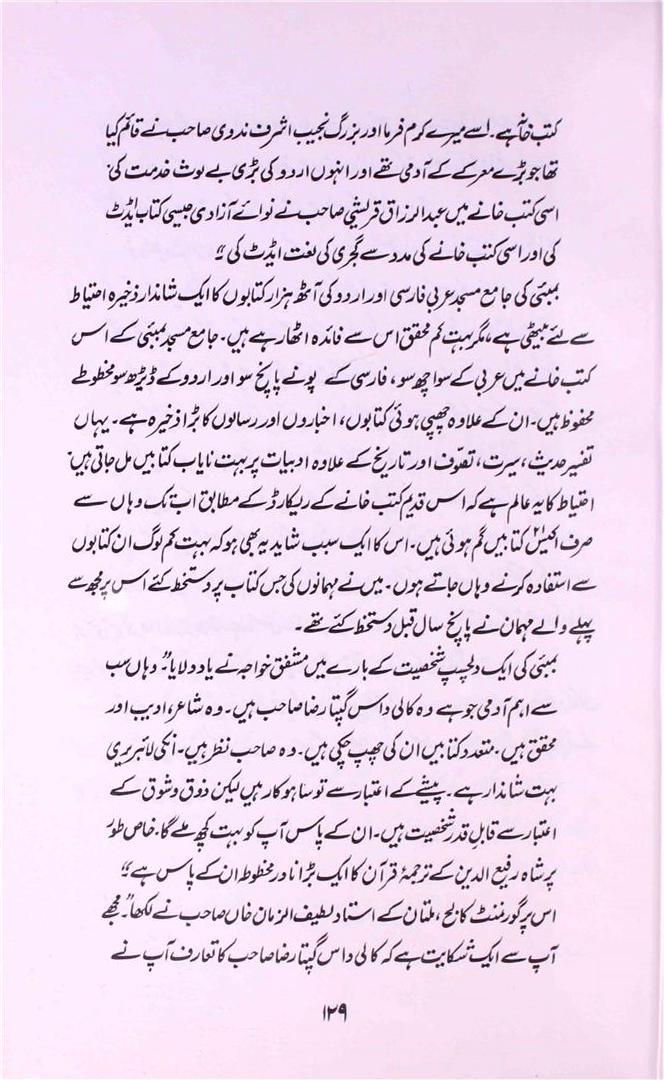 کتب خانہ ہے۔ اسے میرے کرم فرما اور بزرگ نجیب اشرف ندوی صاحب نے قائم کیا
تھا جو بڑے معرکے کے آدمی تھے اور انہوں اردو کی بڑی بے لوث خدمت کی۔
اسی کتب خانے میں عبدالرزاق قریشی صاحب نے نوائے آزادی جیسی کتاب ایڈٹ
کی اور اسی کتب خانے کی مدد سے گجری کی لغت ایڈٹ کی"
بمبئی کی جامع مسجد عربی فارسی اور اردو کی آٹھ ہزار کتابوں کا ایک شاندار ذخیرہ احتیاط
سے لئے بیٹھی ہے، مگر بہت کم محقق اس سے فائدہ اٹھا رہے ہیں۔ جامع مسجد بمبئی کے اس
کتب خانے میں عربی کے سوا چھ سو، فارسی کے پونے پانچ سو اور اردو کے ڈیڑھ سو مخطوطے
محفوظ ہیں۔ ان کے علاوہ چھپی ہوئی کتابوں، اخباروں اور رسالوں کا بڑا ذخیرہ ہے۔ یہاں
تفسیر حدیث، سیرت، تصوف اور تاریخ کے علاوہ ادبیات پر بہت نایاب کتابیں مل جاتی ہیں۔
احتیاط کا یہ عالم ہے کہ اس قدیم کتب خانے کے ریکارڈ کے مطابق اب تک وہاں سے
صرف اکیس ۲۱ کتابیں گم ہوئی ہیں۔ اس کا ایک سبب شاید یہ بھی ہو کہ بہت کم لوگ ان کتابوں
سے استفادہ کرنے وہاں جاتے ہوں۔ میں نے مہمانوں کی جس کتاب پر دستخط کئے اس پر مجھ سے
پہلے والے مہمان نے پانچ سال قبل دستخط کئے تھے۔
بمبئی کی ایک دلچسپ شخصیت کے بارے میں مشفق خواجہ نے یاد دلایا۔" وہاں سب
سے اہم آدمی جو ہے وہ کالی داس گپتا رضا صاحب ہیں۔ وہ شاعر، ادیب اور
محقق ہیں۔ متعدد کتابیں ان کی چھپ چکی ہیں۔ وہ صاحب نظر ہیں۔ انکی لائبریری
بہت شاندار ہے۔ پیشے کے اعتبار سے تو ساہوکار ہیں لیکن ذوق و شوق کے
اعتبار سے قابلِ قدر شخصیت ہیں۔ ان کے پاس آپ کو بہت کچھ ملے گا۔ خاص طور
پر شاہ رفیع الدین کے ترجمۂ قرآن کا ایک بڑا نادر مخطوطہ ان کے پاس ہے"
اس پر گورنمنٹ کالج، ملتان کے استاد لطیف الزمان خاں صاحب نے لکھا۔" مجھے
آپ سے ایک شکایت ہے کہ کالی داس گپتا رضا صاحب کا تعارف آپ نے
۱۲۹